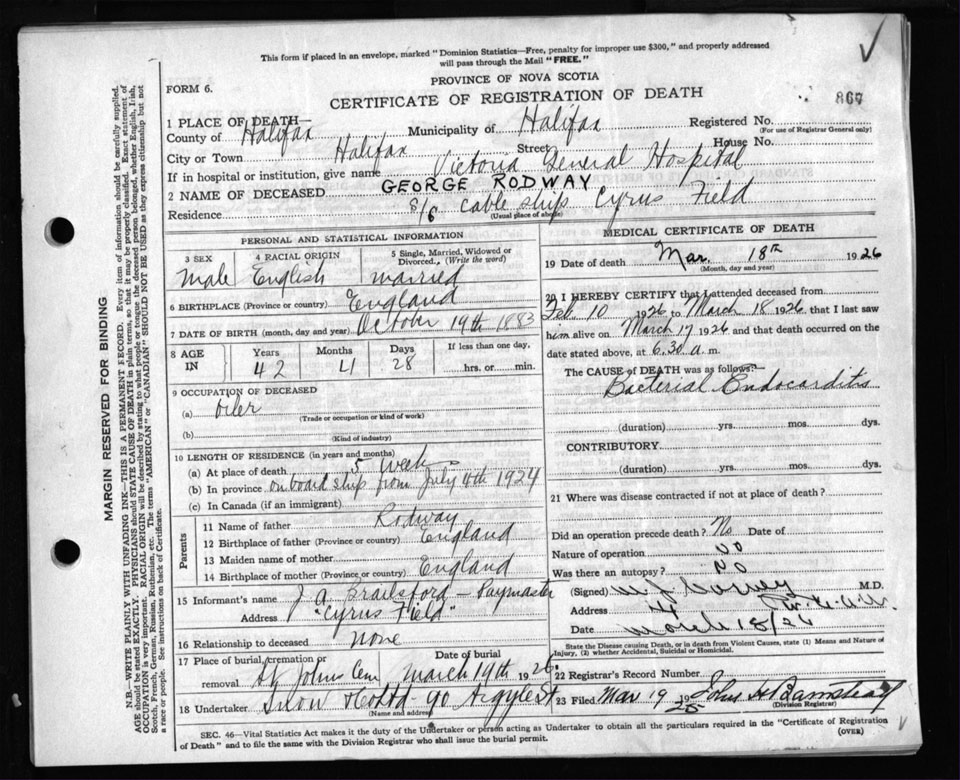 This form if placed in an envelope, marked "Dominion Statistics—Free, penalty for improper use $300," and properly addressed
will pass through the Mail "FREE."
PROVINCE OF NOVA SCOTIA
FORM 6.
CERTIFICATE OF REGISTRATION OF DEATH
867
1 PLACE OF DEATH—
County of Halifax Municipality of Halifax Registered No.
(For use of Registrar General only)
City or Town Halifax Street House No.
If in hospital or institution, give name Victoria General Hospital
2 NAME OF DECEASED GEORGE RODWAY
Residence S/S cable ship Cyrus Field
(Usual place of abode)
PERSONAL AND STATISTICAL INFORMATION
3 SEX 4 RACIAL ORIGIN 5 Single, Married, Widowed or
Divorced. (Write the word)
Male English married
6 BIRTHPLACE (Province or country) England
7 DATE OF BIRTH (month, day and year) October 19th 1883
8 AGE IN Years Months Days If less than one day,
42 4 28 hrs. or min.
9 OCCUPATION OF DECEASED
(a) Oiler
(Trade or occupation or kind of work)
(b)
(Kind of industry)
10 LENGTH OF RESIDENCE (in years and months)
(a) At place of death 5 Weeks
(b) In province on board ship from July 4th 1924
(c) In Canada (if an immigrant)
Parents
11 Name of father Rodway
12 Birthplace of father (Province or country) England
13 Maiden name of mother
14 Birthplace of mother (Province or country) England
15 Informant's name J A Brailsford — Paymaster
Address "Cyrus Field"
16 Relationship to deceased None
17 Place of burial, cremation or Date of burial
removal St Johns Cem March 19th 1926
18 Undertaker Snow & Co Ltd 90 Argyle St
(Name and address)
MEDICAL CERTIFICATE OF DEATH
19 Date of death Mar. 18th 1926
(Month, day and year)
20 I HEREBY CERTIFY that I attended deceased from
Feb. 10 1926 to March 18 1926 that I last saw
him alive on March 17 1926 and that death occurred on
date stated above, at 6.30 a. m.
The CAUSE of DEATH was as follows?—
Bacterial Endocarditis
(duration) yrs. mos. dys.
CONTRIBUTORY.
(duration) yrs. mos. dys.
21 Where was disease contracted if not at place of death?
Did an operation precede death? No Date of
Nature of operation No
Was there an autopsy? No
(Signed) M.D.
Address
Date March 18/26
State the Disease causing Death, or in death from Violent Causes, state (1) Means and Nature of
Injury, (2) whether Accidental, Suicidal or Homicidal.
22 Registrar's Record Number
23 Filed Mar 19
(Division Registrar)
SEC. 46—Vital Statistics Act makes it the duty of the Undertaker or person acting as Undertaker to obtain all the particulars required in the "Certificate of Registration
of Death" and to file the same with the Division Registrar who shall issue the burial permit. (OVER)
MARGIN RESERVED FOR BINDING
N.B.—WRITE PLAINLY WITH UNFADING INK—THIS IS A PERMANENT RECORD. Every item of information should be carefully supplied.
AGE should be stated EXACTLY. PHYSICIANS should STATE CAUSE OF DEATH in plain terms, so that it may be properly classified. Exact statement of
OCCUPATION is very important. RACIAL ORIGIN will be described by stating to what people or tongue the deceased person belonged, whether English, Irish,
Scotch, French, German, Russian, Ruthenian, etc. The terms "AMERICAN" or "CANADIAN" SHOULD NOT BE USED as they express citizenship but not
a race or people. See instructions on back of Certificate.